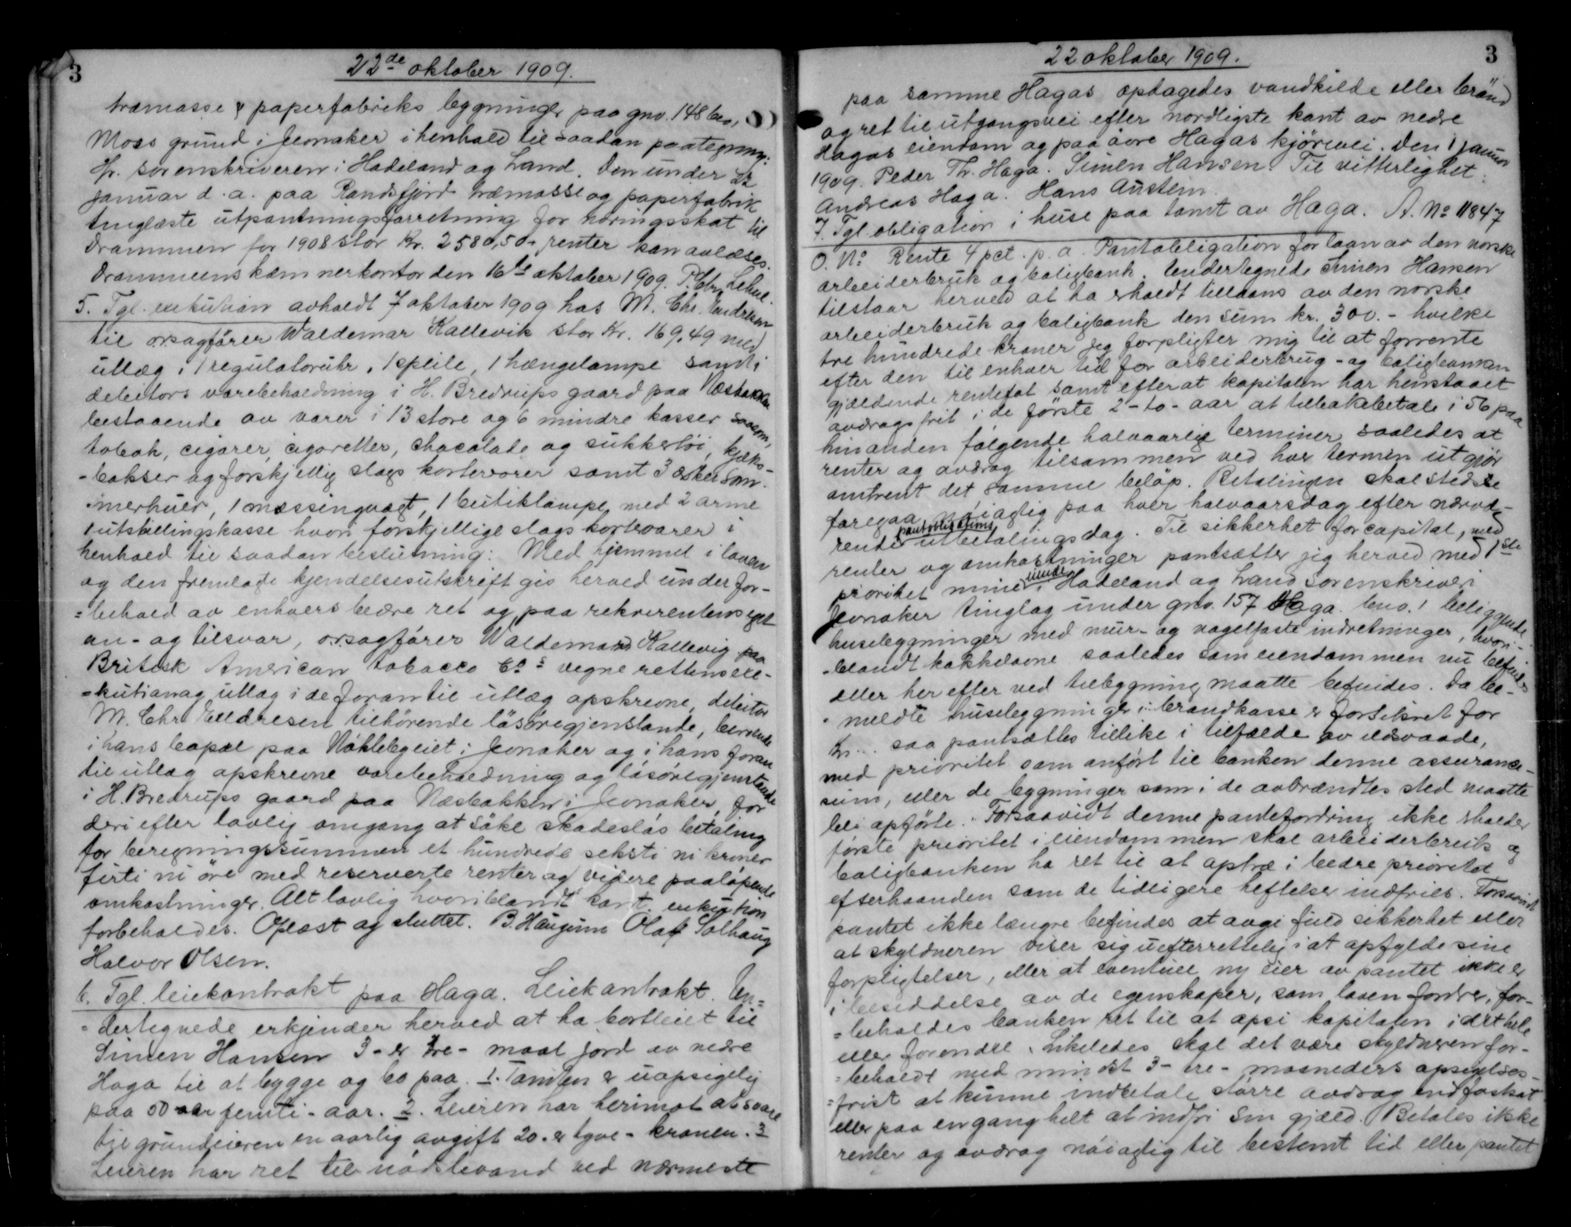 3
22de oktober 1909.
træmasse & papirfabriks bygninger paa gno. 148 bno,
Moss grund i Jevnaker i henhold til saadan paategning:
Hr. sorenskriveren i Hadeland og Land. Den under 22
januar d. a. paa Randsfjord træmasse og papirfabrik
tinglæste utpantningsforretning for næringsskat til
Drammen for 1908 stor Kr. 2580,50 + renter kan avlæses.
Drammens kæmnerkontor den 16de oktober 1909. P.
5. Tgl. exekution avholdt 7 oktober 1909 hos M. Chr. Endresen
til orsagfører Waldemar Kallevik stor Kr. 169,49 med
utlæg i 1 regulatoruhr, 1 speile, 1 hængelampe samt i
debitors varebeholdning i H. Bredrups gaard paa Næsbakken
bestaaende av varer i 13 store og 6 mindre kasser saasom,
tobak, cigarer, cigaretter, chocolade og sukkertøi, kjeks-
-bokser og forskjellig slags kortevarer samt 3 æsker som-
-merhuer, 1 messingvægt, 1 butiklampe med 2 arme
1 utstillingskasse hvori forskjellige slags kortvarer i
henhold til saadan beslutning: Med hjemmel i loven
og den fremlagte kjendelsesutskrift gis herved under for-
=behold av enhvers bedre ret og paa rekvirentens eget
an- og tilsvar, orsagfører Waldemar Kallevig paa
British American Tobacco Co.s vegne rettens exe-
=kution og utlæg i de foran til utlæg opskrevne, debitor
M. Chr. Endresen tilhörende lösöregjenstande, beroende
i hans bopæl paa Nøklebyeiet i Jevnaker og i hans foran
til utlæg opskrevne varebeholdning og lösöregjenstande
i H. Bredrups gaard paa Næsbakken i Jevnaker, for
deri efter lovlig omgang at söke skadeslös betaling
for beregningssummen et hundrede seksti ni kroner
firti ni öre med reserverte renter og videre paalöpende
omkostninger. Alt lovlig hvoriblandt kont. exekution
forbeholdes. Oplæst og sluttet. B. Haugerun Olaf Solhaug
Halvor Olsen.
6. Tgl. leiekontrakt paa Haga. Leiekontrakt. Un=
=dertegnede erkjender herved at ha bortleiet til
Simen Hansen 3- er tre - maal jord av nedre
Haga til at bygge og bo paa. 1. Tomten er uopsigelig
paa 50 aar femti-aar. 2. Leieren har herimot at svare
til grundeieren en aarlig avgift 20. er tyve - kroner. 3
Leieren har ret til nödstevand ved nærmeste
3
22 oktober 1909.
paa samme Hagas opdagedes vandkilde eller brönd
og ret til utgangsvei efter nordligste kant av nedre
Hagas eiendom og paa övre Hagas kjörevei. Den 1 januar
1909. Peder Th. Haga. Simen Hansen. Til vitterlighet:
Andreas Haga. Hans Austem.
7. Tgl. obligation i huse paa tomt av Haga. A. No 11847
O. No Rente 4 pct. p. a. Pantobligation for laan av den norske
arbeiderbruk og boligbank. Undertegnede Simen Hansen
tilstaar herved at ha erholdt tillaans av den norske
arbeiderbruk og boligbank den sum kr. 300.- hvilke
tre hundrede kroner jeg forpligter mig til at forrente
efter den til enhver tid for arbeiderbrug- og boligbanken
gjældende rentefot samt efter at kapitalen har henstaaet
avdragsfrit i de förste 2-to-aar at tilbakebetale i 56 paa
hinanden fölgende halvaarlige terminer saaledes at
renter og avdrag tilsammen ved hver termin utgjör
omtrent det samme belöp. Betalingen skal stedse
foregaa nöiagtig paa hver halvaarsdag efter nærvæ-
rende pantobligations utbetalingsdag. Til sikkerhet for capital, med
renter og omkostninger pantsætter jeg herved med 1ste
prioritet mine under i Hadeland og Land sorenskriveri
Jevnaker tinglag under gno. 157 Haga bno. 1 beliggende
husebygninger med mur- og nagelfaste indretninger, hvori-
-blandt kakkelovne saaledes som eiendommen nu befindes
eller her efter ved tilbygning maatte befindes. Da be-
-meldte husebygninger i brandkasse er forsikret for
kr... saa pantsættes tillike i tilfælde av ildsvaade,
med prioritet som anfört til banken denne assurance-
sum, eller de bygninger som i de avbrændtes sted maatte
bli opförte. Forsaavidt denne pantefordring ikke erholder
förste prioritet i eiendommen skal arbeiderbruk og
boligbanken ha ret til at optræ i bedre prioritet
efterhaanden som de tidligere heftelser indfries. Forsaavidt
pantet ikke længre befindes at avgi fuld sikkerhet eller
at skyldneren viser sig uefterrettelig i at opfylde sine
forpligtelser, eller at eventuel ny eier av pantet ikke er
i besiddelse av de egenskaper, som loven fordrer, for-
=beholdes banken ret til at opsi kapitalen i det hele
eller for en del. Likeledes skal det være skyldneren for-
=beholdt med mindst 3- tre- maaneders opsigelses-
=frist at kunne indbetale större avdrag end fastsat
eller paa en gang helt at indfri sin gjæld. Betales ikke
renter og avdrag nöiagtig til bestemt tid eller pantet